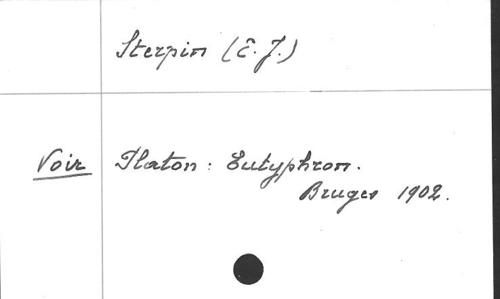 Sterpin (E. J.)
Voir Platon: Eutyphron.
Bruges 1902.